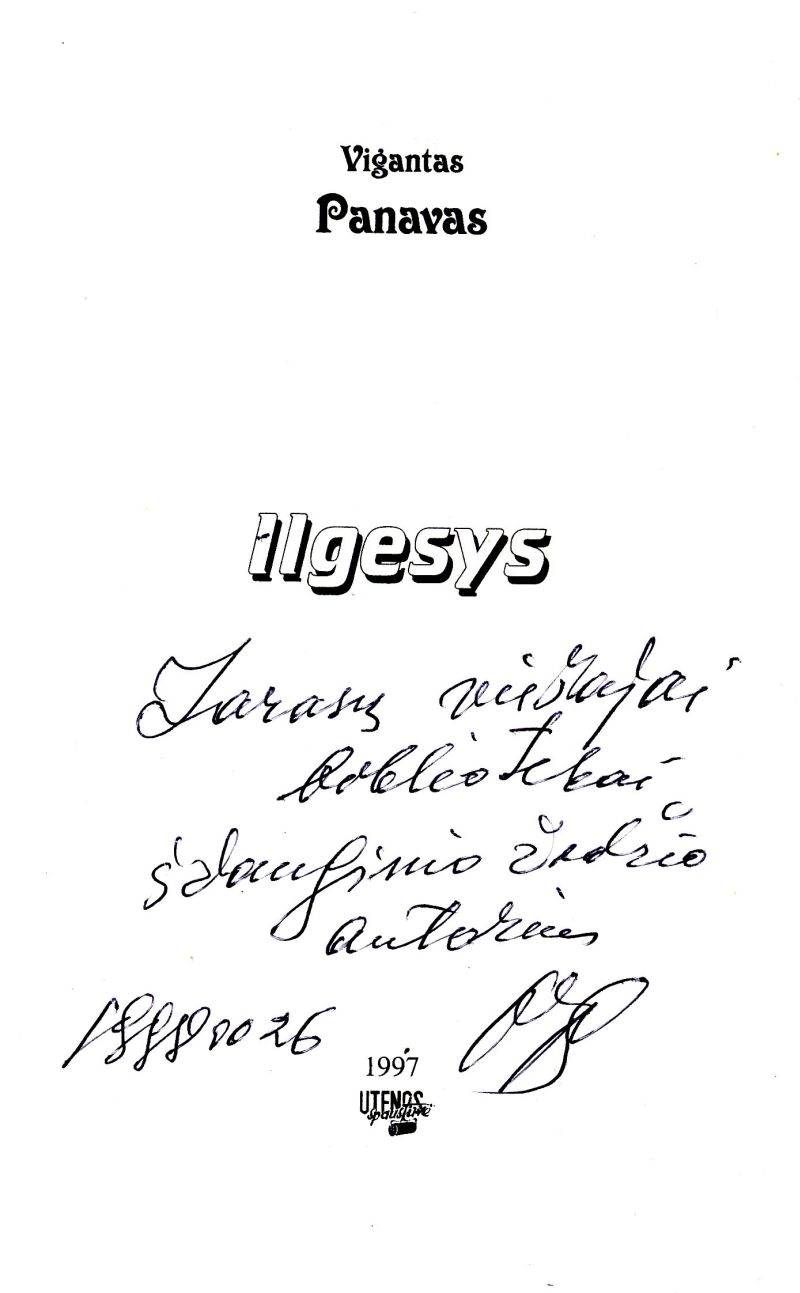 Vigantas
Panavas
Ilgesys
Zarasų viešajai
bibliotekai
žodžio
autorius
1999 10 26
1997
UTENOS
spaustuvė